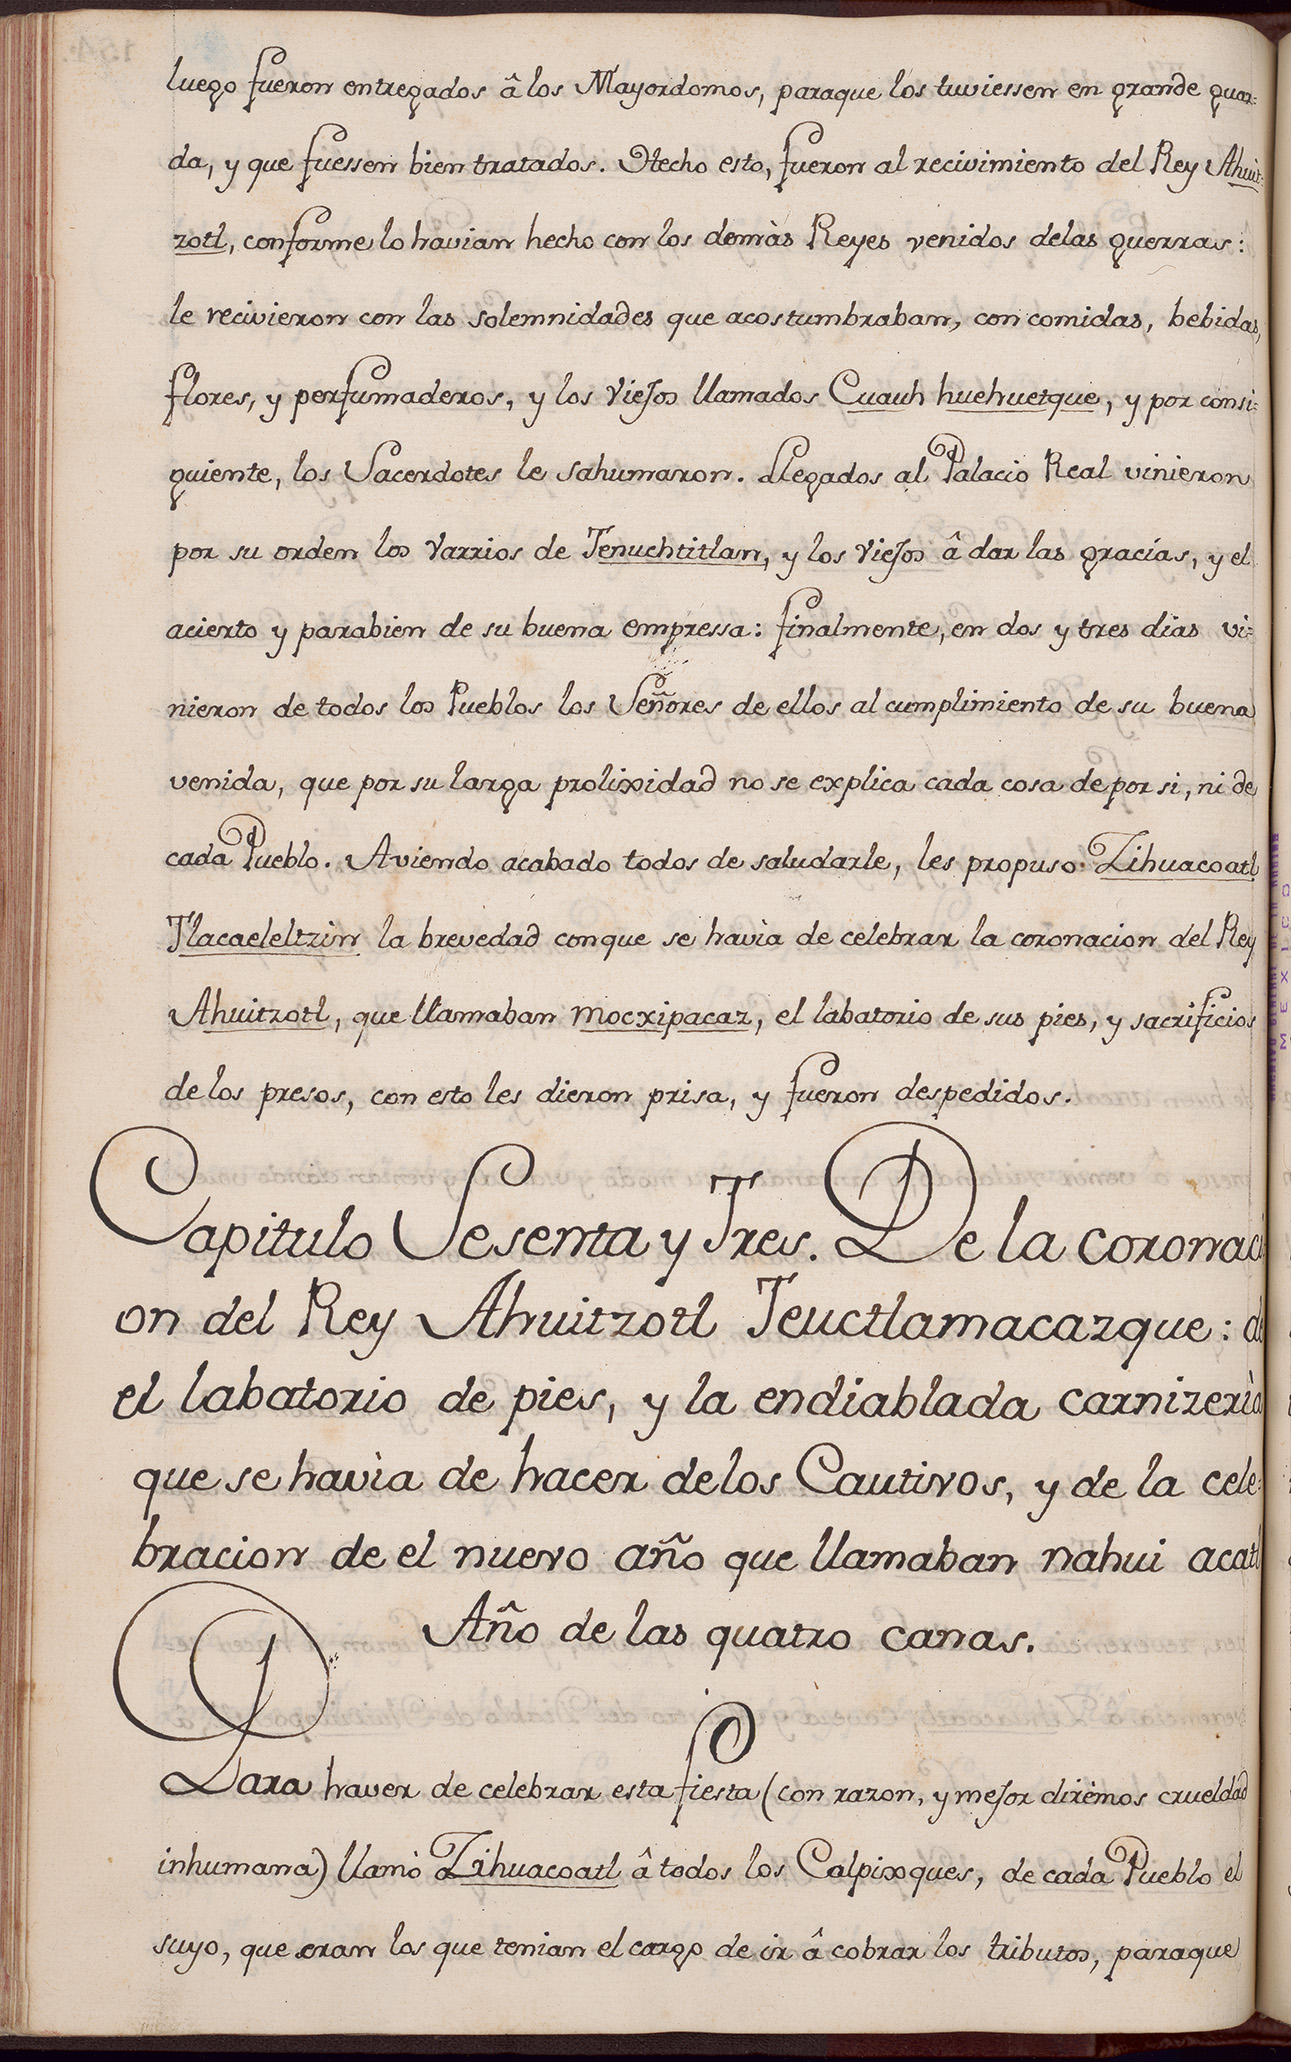 luego fueron entregados â los Mayordomos, paraque los tuviessen en grande guar=
da, y que fuessen bien tratados. Hecho esto, fueron al recivimiento del Rey Ahuit=
zotl, conforme lo havian hecho con los demàs Reyes venidos delas guerras:
le recivieron con las solemnidades que acostumbraban, con comidas, bebidas,
flores, y perfumaderos, y los viejos llamados Cuauh huehuetque, y por consi=
guiente, los Sacerdotes le sahumaron. Llegados al Palacio Real vinieron
por su orden los varrios de Tenuchtitlan, y los viejos â dar las gracias, y el
acierto y parabien de su buena empressa: finalmente, en dos y tres dias vi=
nieron de todos los Pueblos los Señores de ellos al cumplimiento de su buena
venida, que por su larga prolixidad no se explica cada cosa de por si, ni de
cada Pueblo. Aviendo acabado todos de saludarle, les propuso Zihuacoatl
Tlacaeleltzin la brevedad conque se havìa de celebrar la coronacion del Rey
Ahuitzotl, que llamaban mocxipacaz, el labatorio de sus pies, y sacrificios
de los presos, con esto les dieron prisa, y fueron despedidos.
Capitulo Sesenta y Tres. De la coronaci
on del Rey Ahuitzotl Teuctlamacazque: de
el labatorio de pies, y la endiablada carnizerìa
que se havìa de hacer delos Cautivos, y de la cele=
bracion de el nuevo año que llamaban nahui acatl
Año de las quatro canas.
Para haver de celebrar esta fiesta (con razon, y mejor dirèmos crueldad
inhumana) llamò Zihuacoatl â todos los Calpixques, de cada Pueblo el
suyo, que eran los que tenian el cargo de ir â cobrar los tributos, paraque
MEXICO